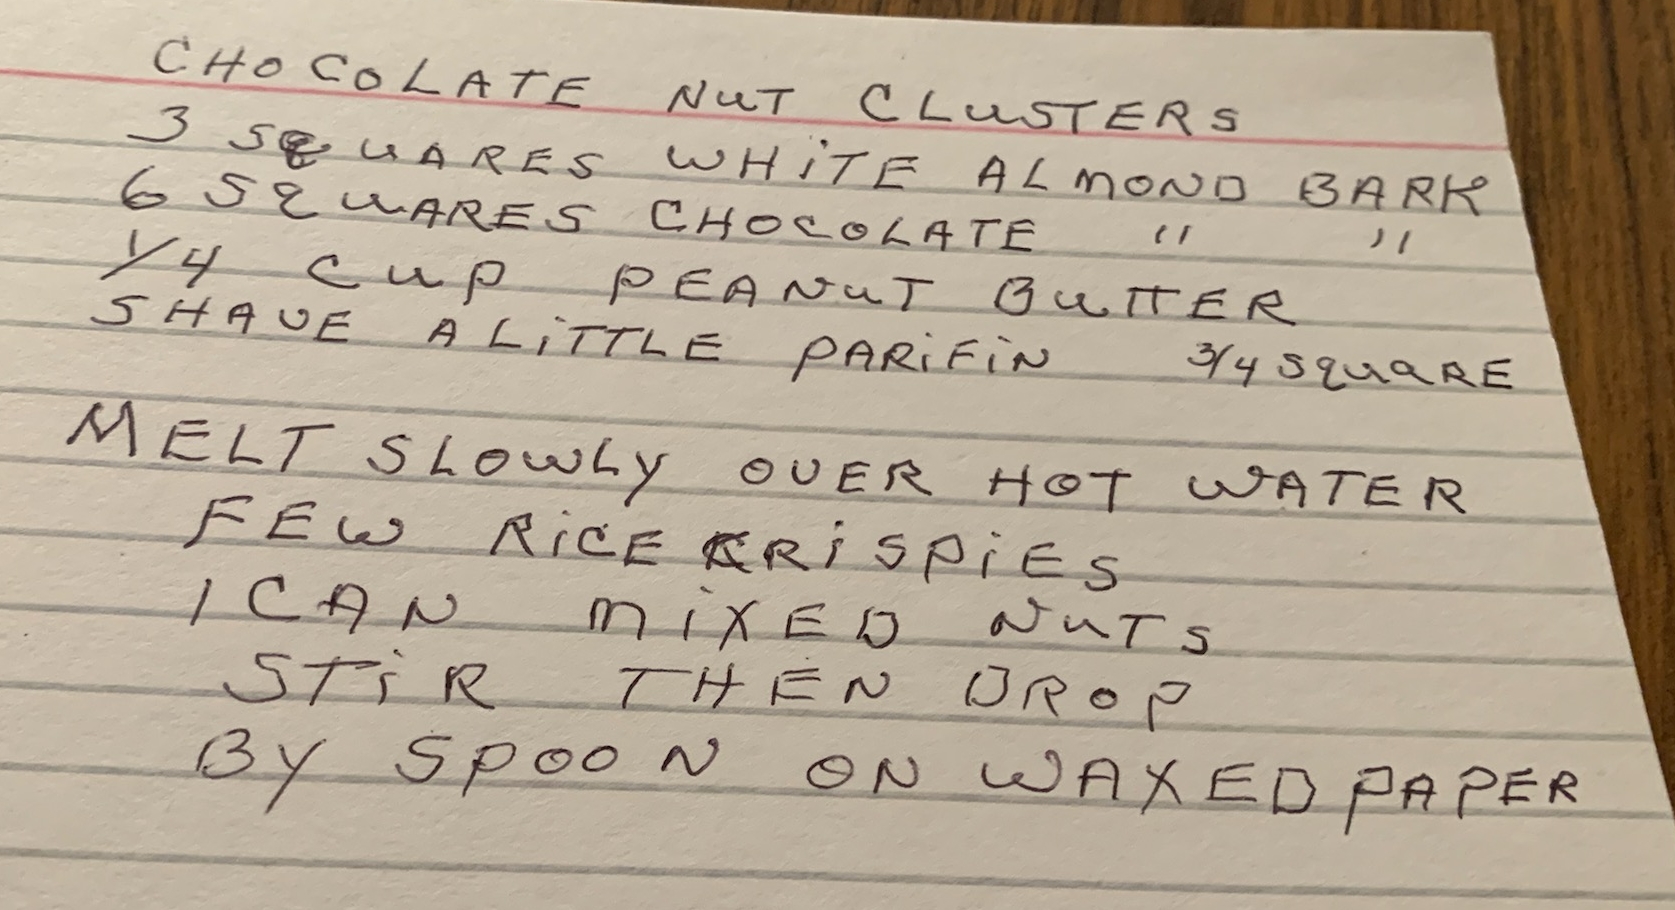 CHOCOLATE NUT CLUSTERS
3 SQUARES WHITE ALMOND BARK
6 SQUARES CHOCOLATE " "
1/4 CUP PEANUT BUTTER
SHAVE A LITTLE PARIFIN 3/4 SQUARE
MELT SLOWLY OVER HOT WATER
FEW RICE KRISPIES
1 CAN MIXED NUTS
STIR THEN DROP
BY SPOON ON WAXED PAPER